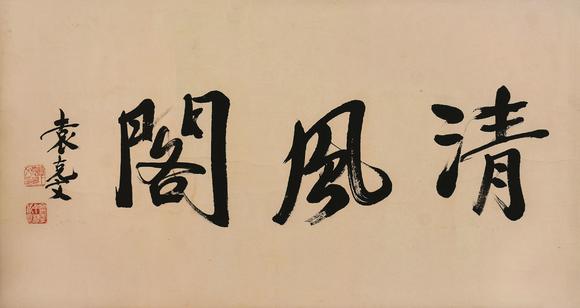 清風閣
袁克文